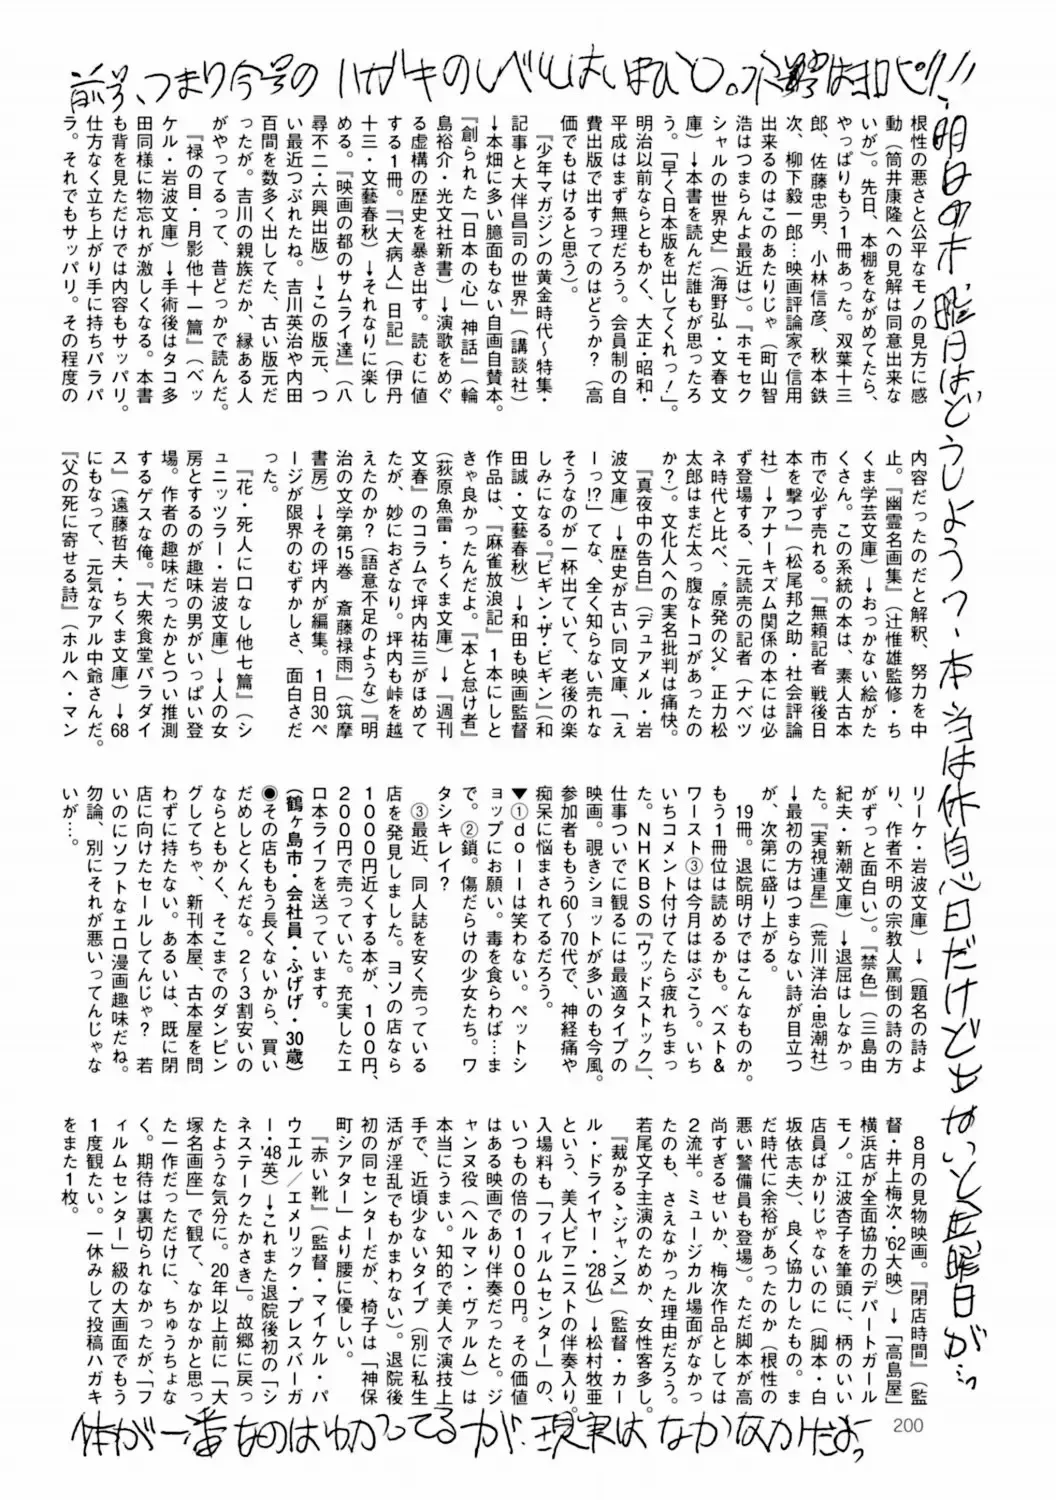 前号、つまり今号のハガキのレベルはいまひと。水野はヨロピ!!
明日の木曜日はどうしよう?本当は休息日だけど出ないと金曜日が…
根性の悪さと公平なモノの見方に感
動(筒井康隆への見解は同意出来な
いが)。先日、本棚をながめてたら、
やっぱりもう1冊あった。双葉十三
郎、佐藤忠男、小林信彦、秋本鉄
次、柳下毅一郎…映画評論家で信用
出来るのはこのあたりじゃ(町山智
浩はつまらんよ最近は)。『ホモセク
シャルの世界史』(海野弘・文春文
庫)→本書を読んだ誰もが思ったろ
う。「早く日本版を出してくれっ!」。
明治以前ならともかく、大正・昭和・
平成はまず無理だろう。会員制の自
費出版で出すってのはどうか?(高
価でもはけると思う)。
『少年マガジンの黄金時代〜特集・
記事と大伴昌司の世界』(講談社)
→本畑に多い臆面もない自画自賛本。
『創られた「日本の心」神話』(輪
島裕介・光文社新書)→演歌をめぐ
る虚構の歴史を暴き出す。読むに値
する1冊。『「大病人」日記』(伊丹
十三・文藝春秋)→それなりに楽し
める。『映画の都のサムライ達』(八
尋不二・六興出版)→この版元、つ
い最近つぶれたね。吉川英治や内田
百間を数多く出してた、古い版元だ
ったが。吉川の親族だか、縁ある人
がやってるって、昔どっかで読んだ。
『禄の目・月影他十一篇』(ベッ
ケル・岩波文庫)→手術後はタコ多
田同様に物忘れが激しくなる。本書
も背を見ただけでは内容もサッパリ。
仕方なく立ち上がり手に持ちパラパ
ラ。それでもサッパリ。その程度の
内容だったのだと解釈、努力を中
止。『幽霊名画集』(辻惟雄監修・ち
くま学芸文庫)→おっかない絵がた
くさん。この系統の本は、素人古本
市で必ず売れる。『無頼記者 戦後日
本を撃つ』(松尾邦之助・社会評論
社)→アナーキズム関係の本には必
ず登場する、元読売の記者(ナベツ
ネ時代と比べ、〝原発の父〟正力松
太郎はまだ太っ腹なトコがあったの
か?)。文化人への実名批判は痛快。
『真夜中の告白』(デュアメル・岩
波文庫)→歴史が古い同文庫、「え
ーっ!?」てな、全く知らない売れな
そうなのが一杯出ていて、老後の楽
しみになる。『ビギン・ザ・ビギン』(和
田誠・文藝春秋)→和田も映画監督
作品は、『麻雀放浪記』1本にしと
きゃ良かったんだよ。『本と怠け者』
(荻原魚雷・ちくま文庫)→『週刊
文春』のコラムで坪内祐三がほめて
たが、妙におざなり。坪内も峠を越
えたのか?(語意不足のような)『明
治の文学第15巻 斎藤禄雨』(筑摩
書房)→その坪内が編集。1日30ペ
ージが限界のむずかしさ、面白さだ
った。
『花・死人に口なし他七篇』(シ
ュニッツラー・岩波文庫)→人の女
房とするのが趣味の男がいっぱい登
場。作者の趣味だったかとつい推測
するゲスな俺。『大衆食堂パラダイ
ス』(遠藤哲夫・ちくま文庫)→68
にもなって、元気なアル中爺さんだ。
『父の死に寄せる詩』(ホルヘ・マン
リーケ・岩波文庫)→(題名の詩よ
り、作者不明の宗教人罵倒の詩の方
がずっと面白い)。『禁色』(三島由
紀夫・新潮文庫)→退屈はしなかっ
た。『実視連星』(荒川洋治・思潮社)
→最初の方はつまらない詩が目立つ
が、次第に盛り上がる。
19冊。退院明けではこんなものか。
もう1冊位は読めるかも。ベスト&
ワースト③は今月ははぶこう。いち
いちコメント付けてたら疲れちまっ
た。NHKBSの『ウッドストック』、
仕事ついでに観るには最適タイプの
映画。覗きショットが多いのも今風。
参加者ももう60〜70代で、神経痛や
痴呆に悩まされてるだろう。
▼①dollは笑わない。ペットシ
ョップにお願い。毒を食らわば…ま
で。②鎖。傷だらけの少女たち。ワ
タシキレイ?
③最近、同人誌を安く売っている
店を発見しました。ヨソの店なら
1000円近くする本が、100円、
200円で売っていた。充実したエ
ロ本ライフを送っています。
(鶴ヶ島市・会社員・ふげげ・30歳)
◉その店ももう長くないから、買い
だめしとくんだな。2〜3割安いの
ならともかく、そこまでのダンピン
グしてちゃ、新刊本屋、古本屋を問
わずに持たない。あるいは、既に閉
店に向けたセールしてんじゃ? 若
いのにソフトなエロ漫画趣味だね。
勿論、別にそれが悪いってんじゃな
いが…。
8月の見物映画。『閉店時間』(監
督・井上梅次・'62大映)→「高島屋」
横浜店が全面協力のデパートガール
モノ。江波杏子を筆頭に、柄のいい
店員ばかりじゃないのに(脚本・白
坂依志夫)、良く協力したもの。ま
だ時代に余裕があったのか(根性の
悪い警備員も登場)。ただ脚本が高
尚すぎるせいか、梅次作品としては
2流半。ミュージカル場面がなかっ
たのも、さえなかった理由だろう。
若尾文子主演のためか、女性客多し。
『裁かるゝジャンヌ』(監督・カー
ル・ドライヤー・'28仏)→松村牧亜
という、美人ピアニストの伴奏入り。
入場料も「フィルムセンター」の、
いつもの倍の1000円。その価値
はある映画であり伴奏だったと。ジ
ャンヌ役(ヘルマン・ヴァルム)は
本当にうまい。知的で美人で演技上
手で、近頃少ないタイプ(別に私生
活が淫乱でもかまわない)。退院後
初の同センターだが、椅子は「神保
町シアター」より腰に優しい。
『赤い靴』(監督・マイケル・パ
ウエル/エメリック・プレスバーガ
ー・'48英)→これまた退院後初の「シ
ネステークたかさき」。故郷に戻っ
たような気分に。20年以上前に「大
塚名画座」で観て、なかなかと思っ
た一作だっただけに、ちゅうちょな
く。期待は裏切られなかったが、「フ
ィルムセンター」級の大画面でもう
1度観たい。一休みして投稿ハガキ
をまた1枚。
体が一番なのはゆかってるが、現実はなかなかだよっ
200